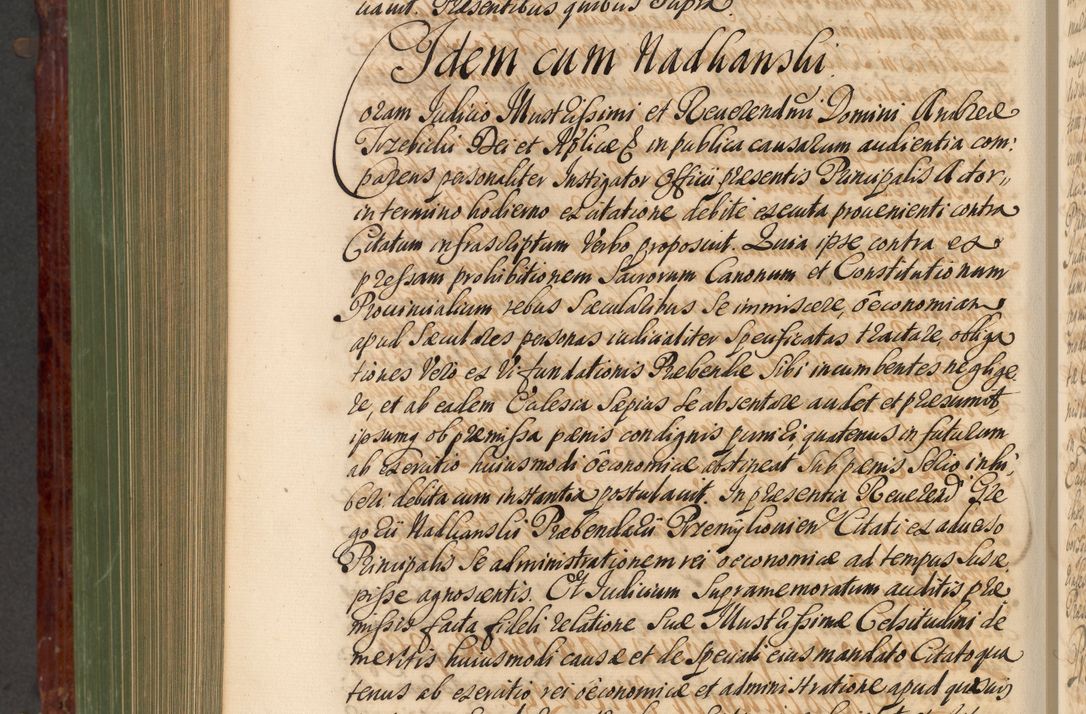 uauit. Præsentibus quibus supra.
Idem cum Nadhanski.
oram Iudicio Illustrissimi et Reuerendmi Domini Andreæ
Trzebicki Dei et Aplicæ & in publica causarum audientia com:
parens personaliter Instigator Officii præsentis Principalis Actor,,
in termino hodierno ex citatione debite executa prouenienti contra
Citatum infrascriptum Verbo proposuit. Quia ipse contra ex
pressam prohibitionem Sacrorum Canonum et Constitutionum
Prouincialium rebus Sæcularibus se immiscere, œconomiam
apud Sæculares personas iudicialiter specificatas tractare, obliga
tiones Vero ex Vi fundationis Præbendæ Sibi incumbentes neglige
re, et ab eadem Ecclesia sæpius se absentare audet et præsumit
ipsumq ob præmissa pænis condignis puniri quatenus in futurum
ab exercitio huiusmodi œconomiæ abstineat sub pænis Serio inhi,
beri debita cum instantia postulauit. In præsentia Reuerend Gre
gorii Nadhanskii Præbendarii Przemykouien Citati ex aduerso
Principalis se administrationem rei œconomicæ ad tempus susce,
pisse agnoscentis. Et Iudicium Supramemoratum auditis præ
missis facta fideli relatione suæ Illustrissimæ Celsitudini de
meritis huiusmodi causæ et de speciali eius mandato Citato qua
tenus ab exercitio rei œconomicæ et administratione apud quosuis